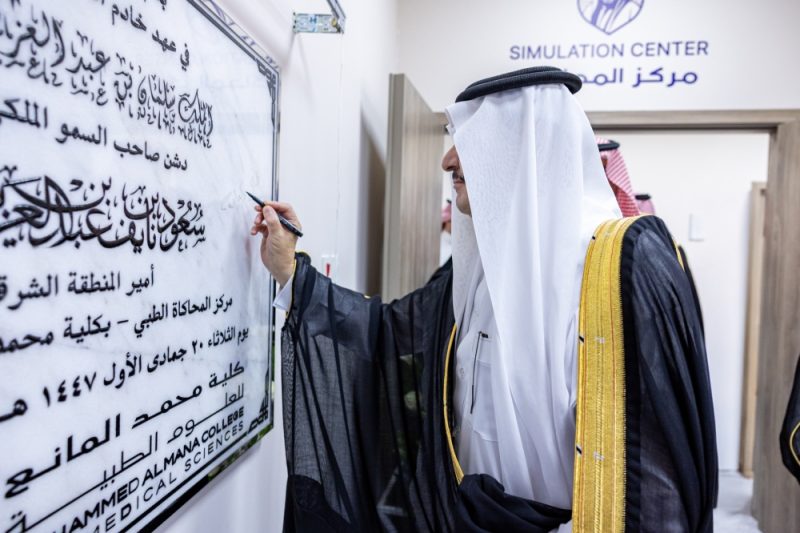 في عهد خادم
الملك سلمان بن عبد العز
دشن صاحب السمو الملكي
سعود بن نايف بن عبد العزيز
أمير المنطقة الشرق
مركز المحاكاة الطبي - بكلية محمد
يوم الثلاثاء ٢٠ جمادى الأول ١٤٤٧ هـ
كلية محمد المانع
للعلوم الطبية
HAMMED ALMANA COLLEGE
MEDICAL SCIENCES
SIMULATION CENTER
مركز